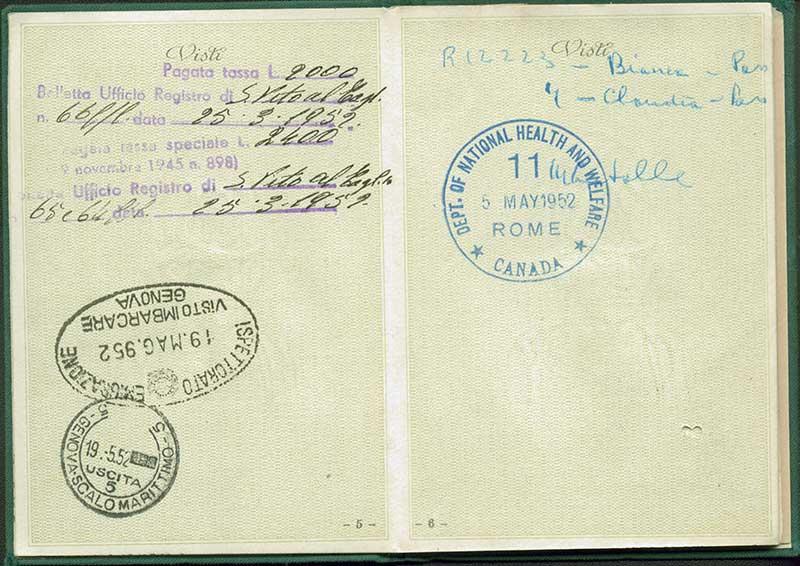 Visti
Pagata tassa L. 2000
Bolletta Ufficio Registro di S. Vito al Tagl.
n. data 25.3.1952.
Pagata tassa speciale L. 2400
9 novembre 1945 n. 898)
Ufficio Registro di S. Vito al Tagl.to
data 25.3.1952.
ISPETTORATO EMIGRAZIONE
19.MAG.952
VISTO IMBARCARE
GENOVA
5-GENOVA-SCALO MARITTIMO-5
19.-5.52
USCITA
5
- 5 -
Visti
R12223 - Bianca - Pass
" - Claudia - Pass
DEPT. OF NATIONAL HEALTH AND WELFARE
11
5 MAY 1952
ROME
CANADA
- 6 -